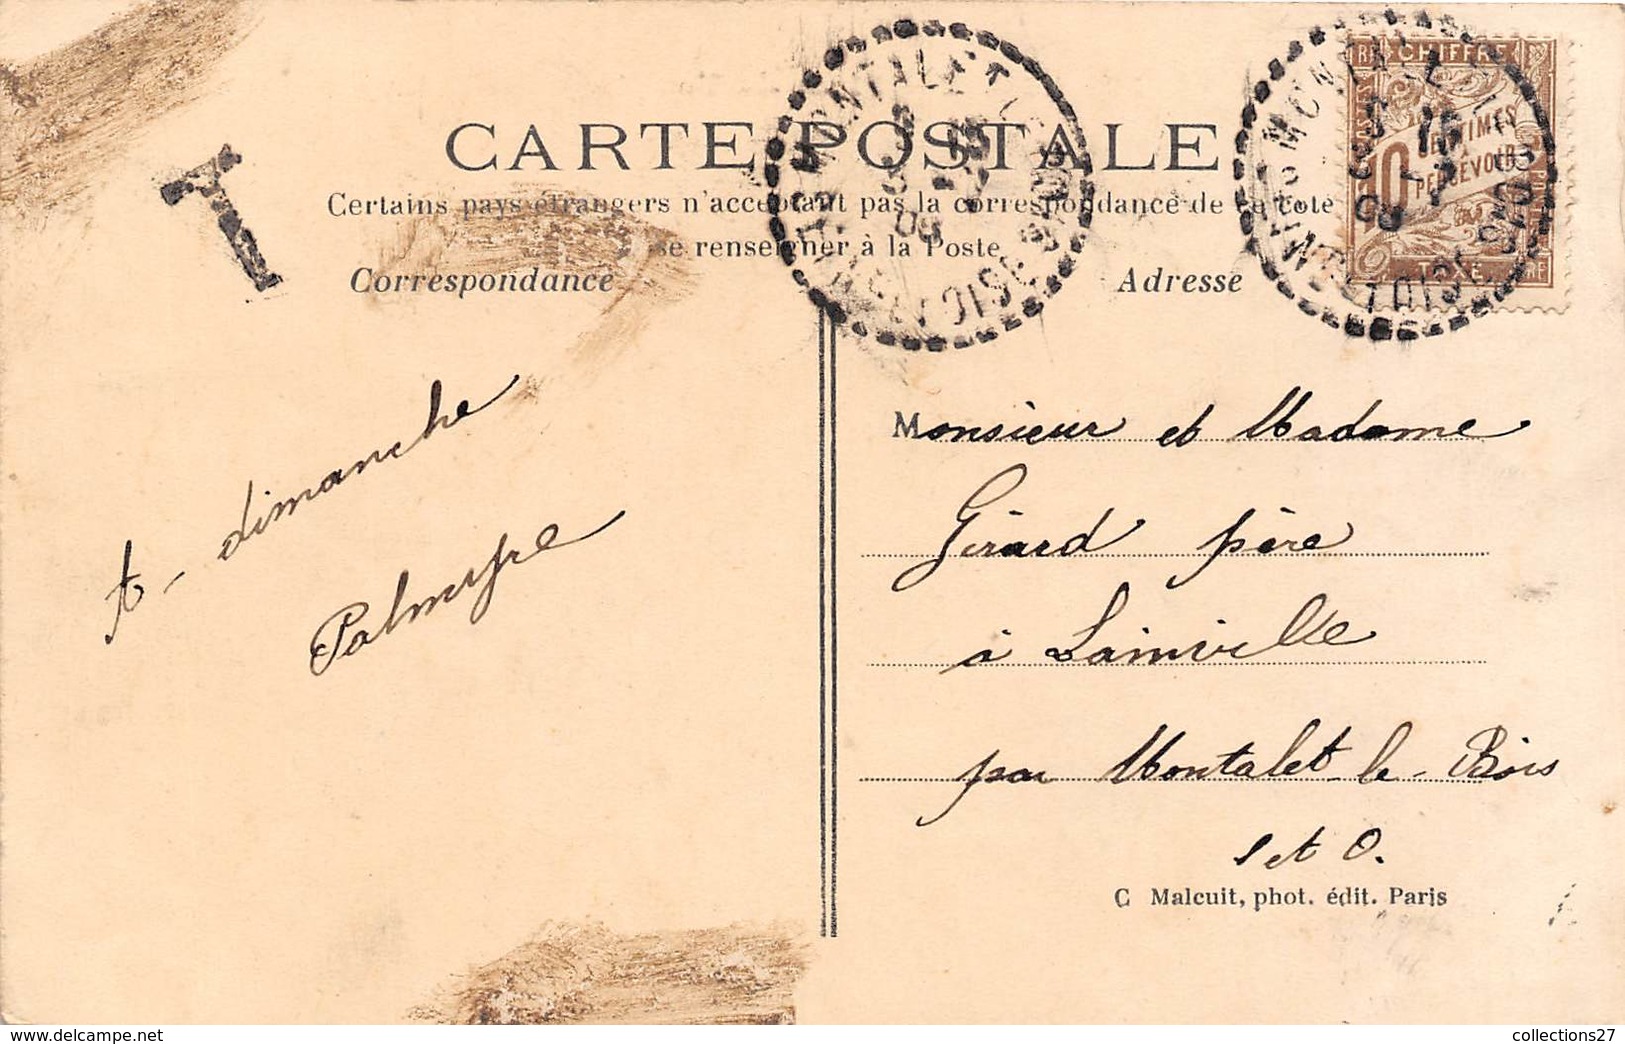 CARTE POSTALE
Certains pays étrangers n'acceptant pas la correspondance de ce côté
se renseigner à la Poste
Correspondance
Adresse
T
MONTALET
CHIFFRE
10 CENTIMES
PERCEVOIR
TAXE
à dimanche
Palmyre
Monsieur et Madame
Girard père
à Lainville
par Montalet-le-Bois
S et O.
C Malcuit, phot. édit. Paris
collections27